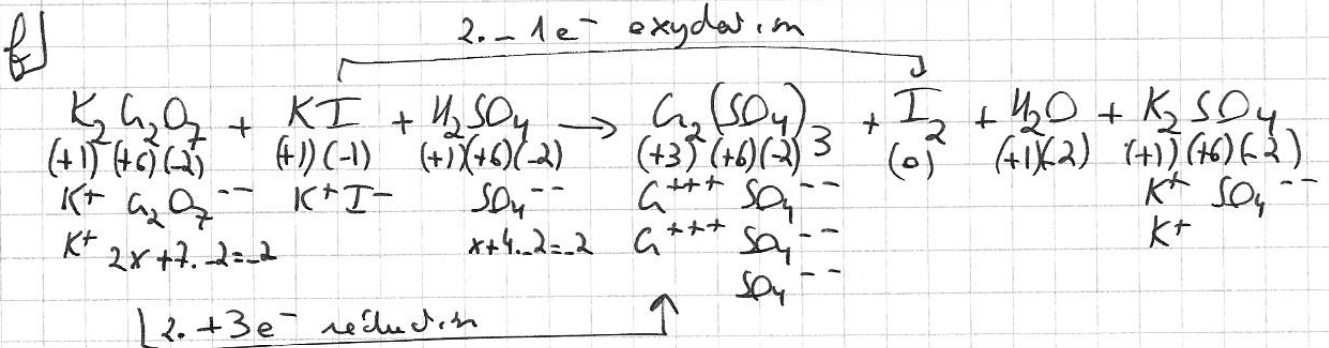 f]
2. -1e⁻ oxydation
K₂Cr₂O₇ + KI + H₂SO₄ → Cr₂(SO₄)₃ + I₂ + H₂O + K₂SO₄
(+1) (+6) (-2) (+1) (-1) (+1) (+6) (-2) (+3) (+6) (-2) (0) (+1) (-2) (+1) (+6) (-2)
K⁺ Cr₂O₇⁻⁻ K⁺ I⁻ SO₄⁻⁻ Cr⁺⁺⁺ SO₄⁻⁻ K⁺ SO₄⁻⁻
K⁺ 2x+7.-2=-2 x+4.-2=-2 Cr⁺⁺⁺ SO₄⁻⁻ K⁺
SO₄⁻⁻
2. +3e⁻ réduction